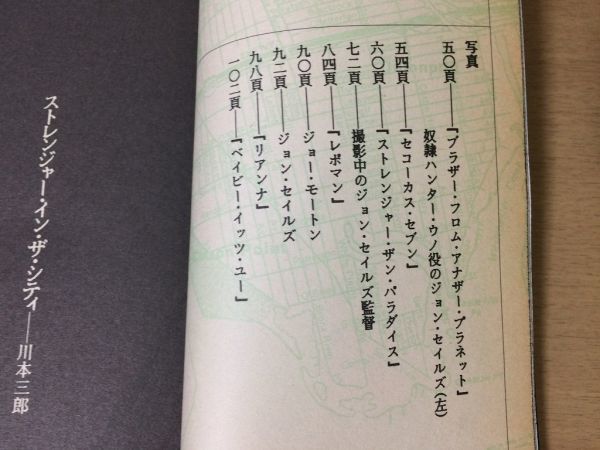 写真
五〇頁――『ブラザー・フロム・アナザー・プラネット』
奴隷ハンター・ウノ役のジョン・セイルズ(左)
五四頁――『セコーカス・セブン』
六〇頁――『ストレンジャー・ザン・パラダイス』
七二頁――撮影中のジョン・セイルズ監督
八四頁――『レポマン』
九〇頁――ジョー・モートン
九二頁――ジョン・セイルズ
九八頁――『リアンナ』
一〇二頁――『ベイビー・イッツ・ユー』
ストレンジャー・イン・ザ・シティ――川本三郎